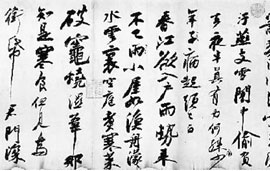 汙燕支雪闇中偷負
去夜半真有力何殊少
年子病起頭已白
春江欲入戶雨勢来
不已雨小屋如漁舟濛〻
水雲裏空庖煮寒菜
破竈燒濕葦那
知是寒食但見烏
銜帋 君門深